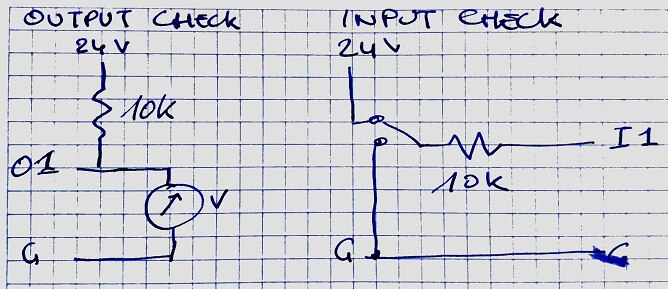 OUTPUT CHECK
24V
10k
O1
V
G
INPUT CHECK
24V
I1
10k
G
G